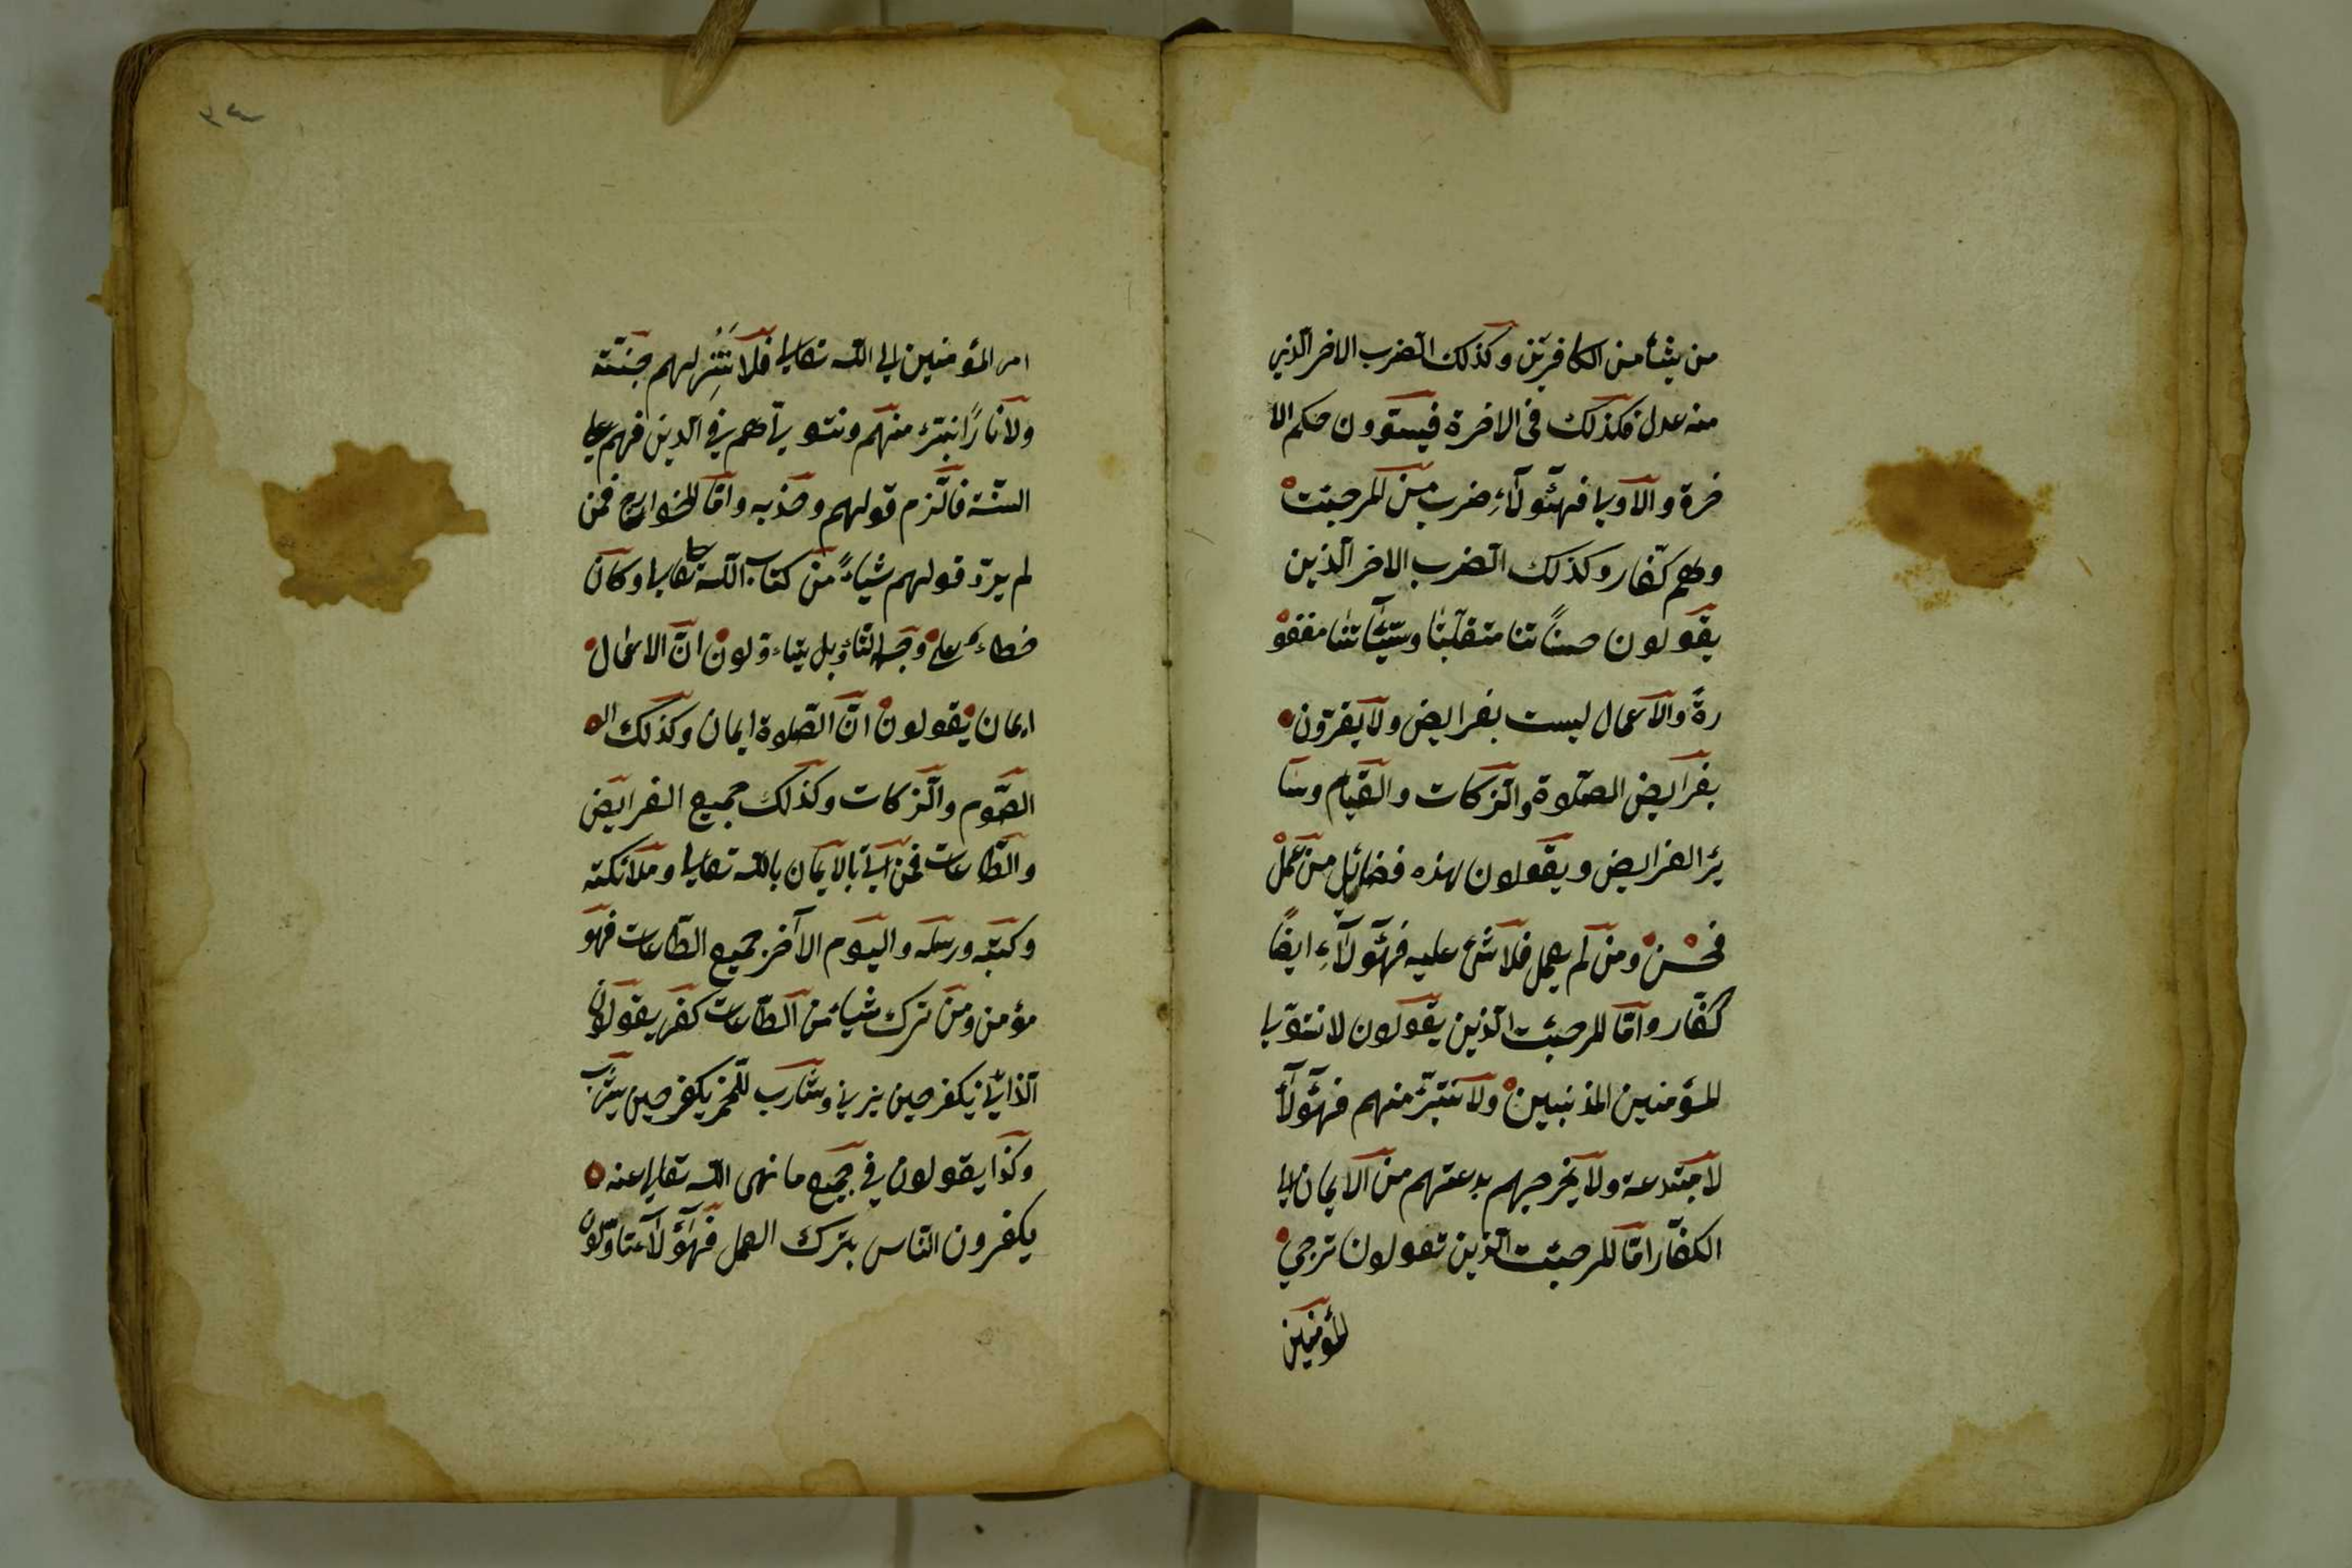 من يشأ من الكافرين وكذلك الضرب الاخر الذين
منه عدل فكذلك فى الاخرة فيستوون حكم الا
خرة والاوىا فهئولآء ضرب من المرجئت
وهم كفار وكذلك الضرب الاخر الذين
يقولون حسناتنا متقلبنا وسيئاتنا مغفو
رة والاعمال ليست بفرايض ولا يقرون
بفرايض الصلوة والزكات والقيام وسا
ئر الفرايض ويقولون لهذه فضايل من عمل
فحسن ومن لم يعمل فلا شئ عليه فهئولآء ايضا
كفار واما المرجئت الذين يقولون لا نتولى
المؤمنين المذنبين ولا نتبرّ منهم فهئولآ
لا مبتدعة ولا يخرجهم بدعتهم من الايمان الى
الكفار اما المرجئت الذين تقولون ترجى
المؤمنين
٣٤
امر المؤمنين الى الله تعالى فلا ننزلهم جنتة
ولا نارا نتبرّء منهم ونتولاهم فى الدين فهم على
السنة فالتزم قولهم وخذ به واما الخوارج فمن
لم يردّ قولهم شياء من كتاب الله تعالى وكان
خطاءهم على وجه التاويل يتاءولون ان الاعمال
ايمان يقولون ان الصلاوة ايمان وكذلك
الصوم والزكات وكذلك جميع الفرايض
والطاعات فمن اتى بالايمان بالله تعالى وملائكته
وكتبه ورسله واليوم الآخر جميع الطاعات فهو
مؤمن ومن ترك شياء من الطاعات كفر يقولون
الذانى يكفر حين يزنى وشارب الخمر يكفر حين يشرب
وكذا يقولون فى جميع ما نهى الله تعالى عنه
يكفرون الناس بترك العمل فهئولآ متاولون